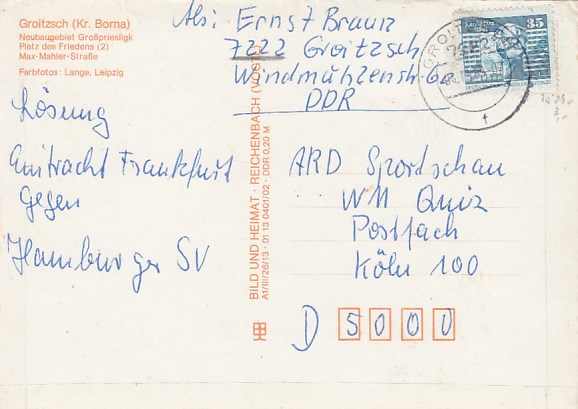 Groitzsch (Kr. Borna)
Neubaugebiet Großpriesligk
Platz des Friedens (2)
Max-Mahler-Straße
Farbfotos: Lange, Leipzig
Abs: Ernst Braun
7222 Groitzsch
Windmühlenstr
DDR
35
GROITZSCH
7222
f
Lösung
Eintracht Frankfurt
gegen
Hamburger SV
BILD UND HEIMAT · REICHENBACH (VOGTL)
A1/III/26/13 · 01 13 0401/02 · DDR 0,20 M
ARD Sportschau
WM Quiz
Postfach
Köln 100
D 5000